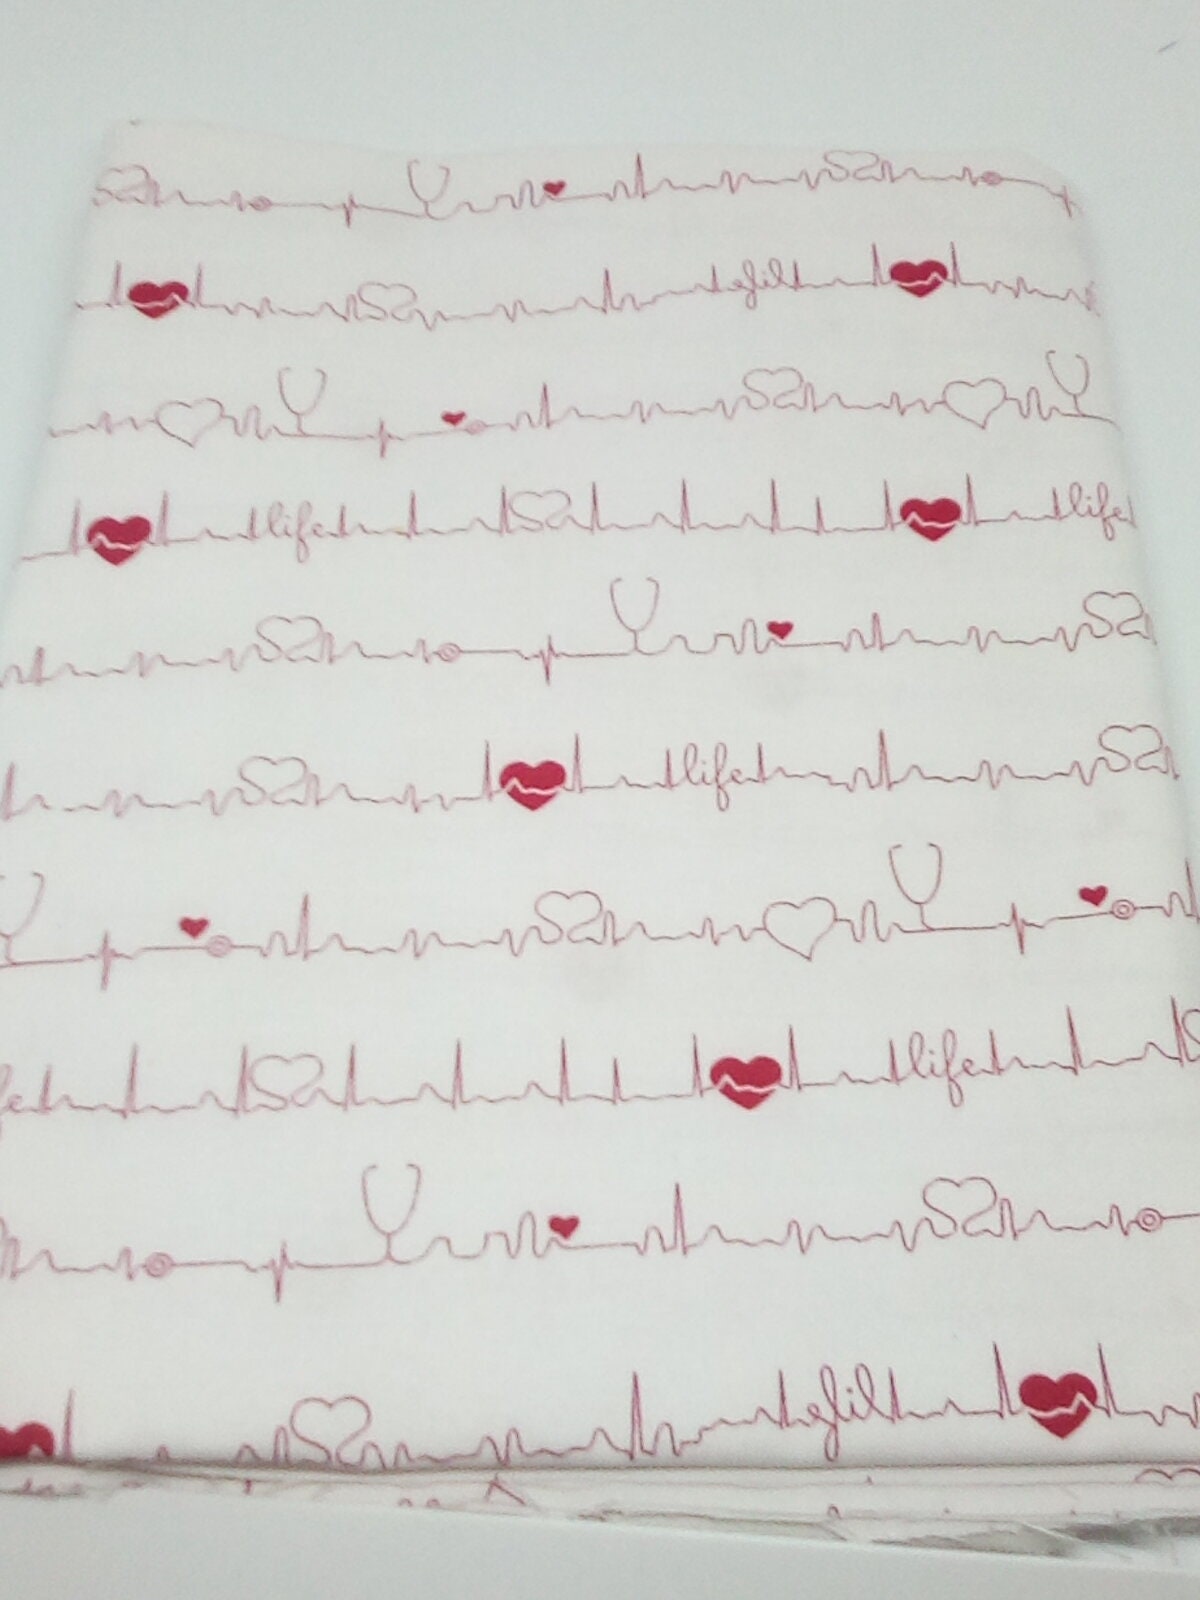 life life
life
life